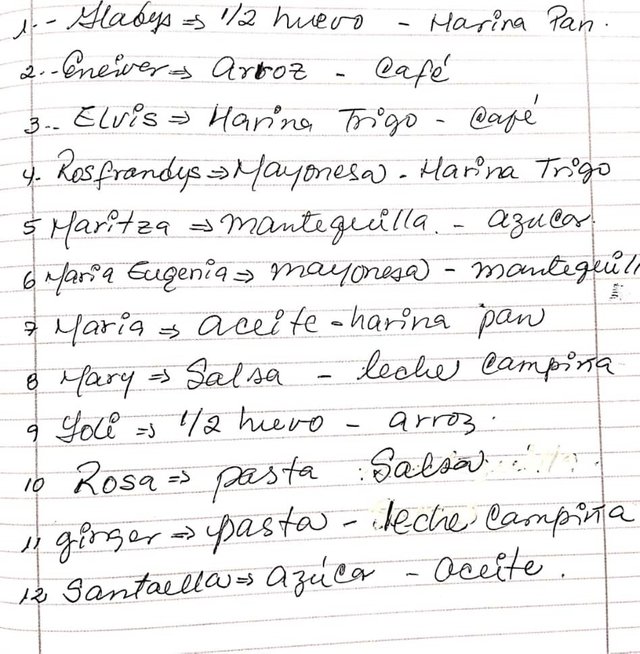 1.- Gladys ⇒ 1/2 huevo - Harina Pan.
2.- Eneiver ⇒ Arroz - Café
3.- Elvis ⇒ Harina Trigo - Café
4. Rosfrandys ⇒ Mayonesa - Harina Trigo
5 Maritza ⇒ mantequilla. - azucar.
6 Maria Eugenia ⇒ mayonesa - mantequill
7 Maria ⇒ aceite - harina pan
8 Mary ⇒ Salsa - leche Campiña
9 Yoli ⇒ 1/2 huevo - arroz.
10 Rosa ⇒ pasta Salsa
11 ginger ⇒ pasta - leche Campiña
12 Santaella ⇒ azúcar - aceite.